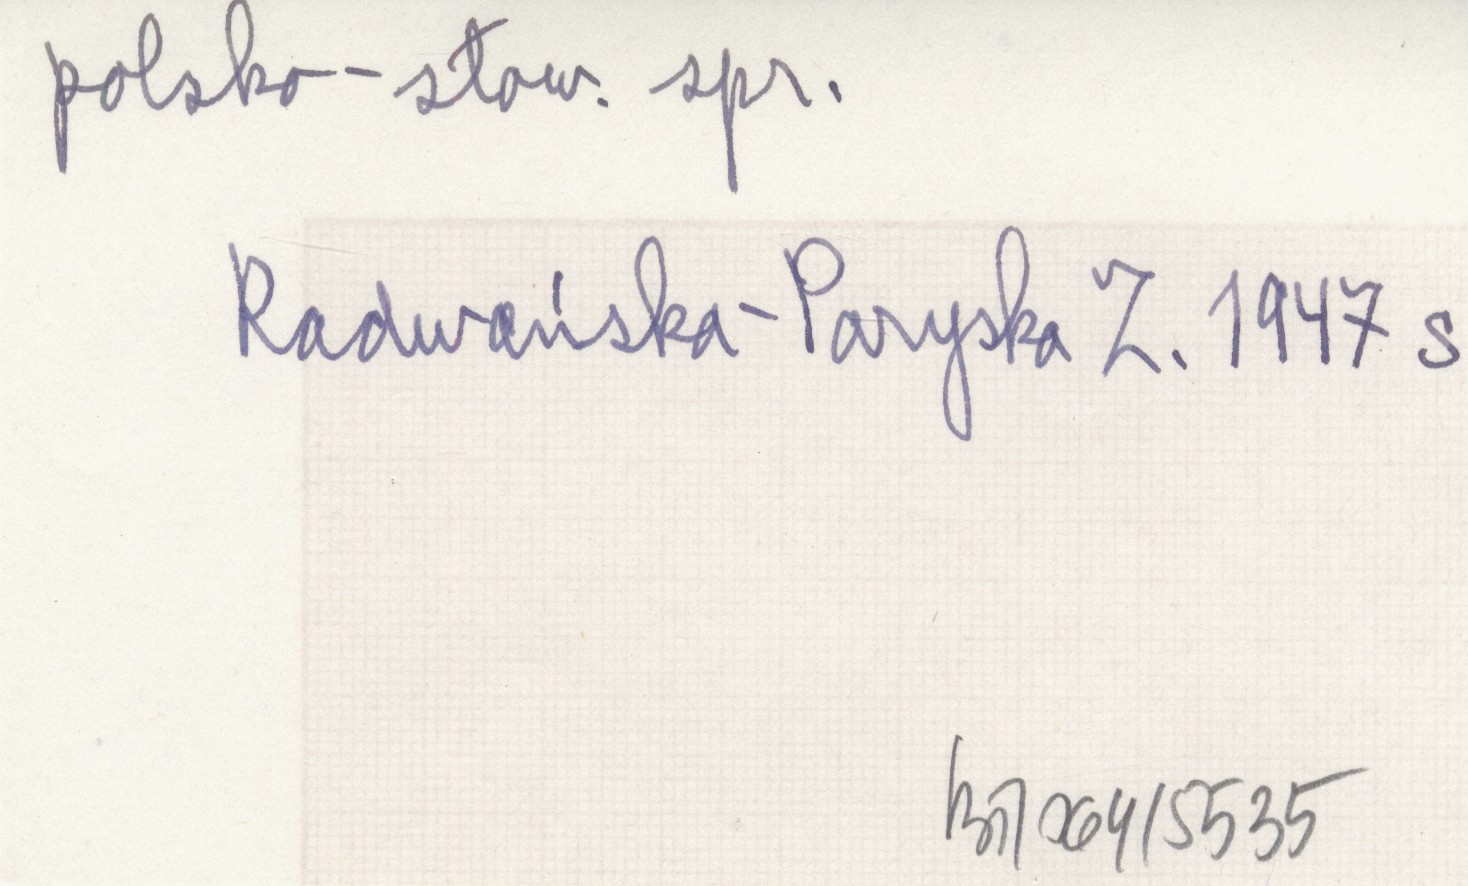 polsko-słow. spr.
Radwańska-Paryska Z. 1947 s